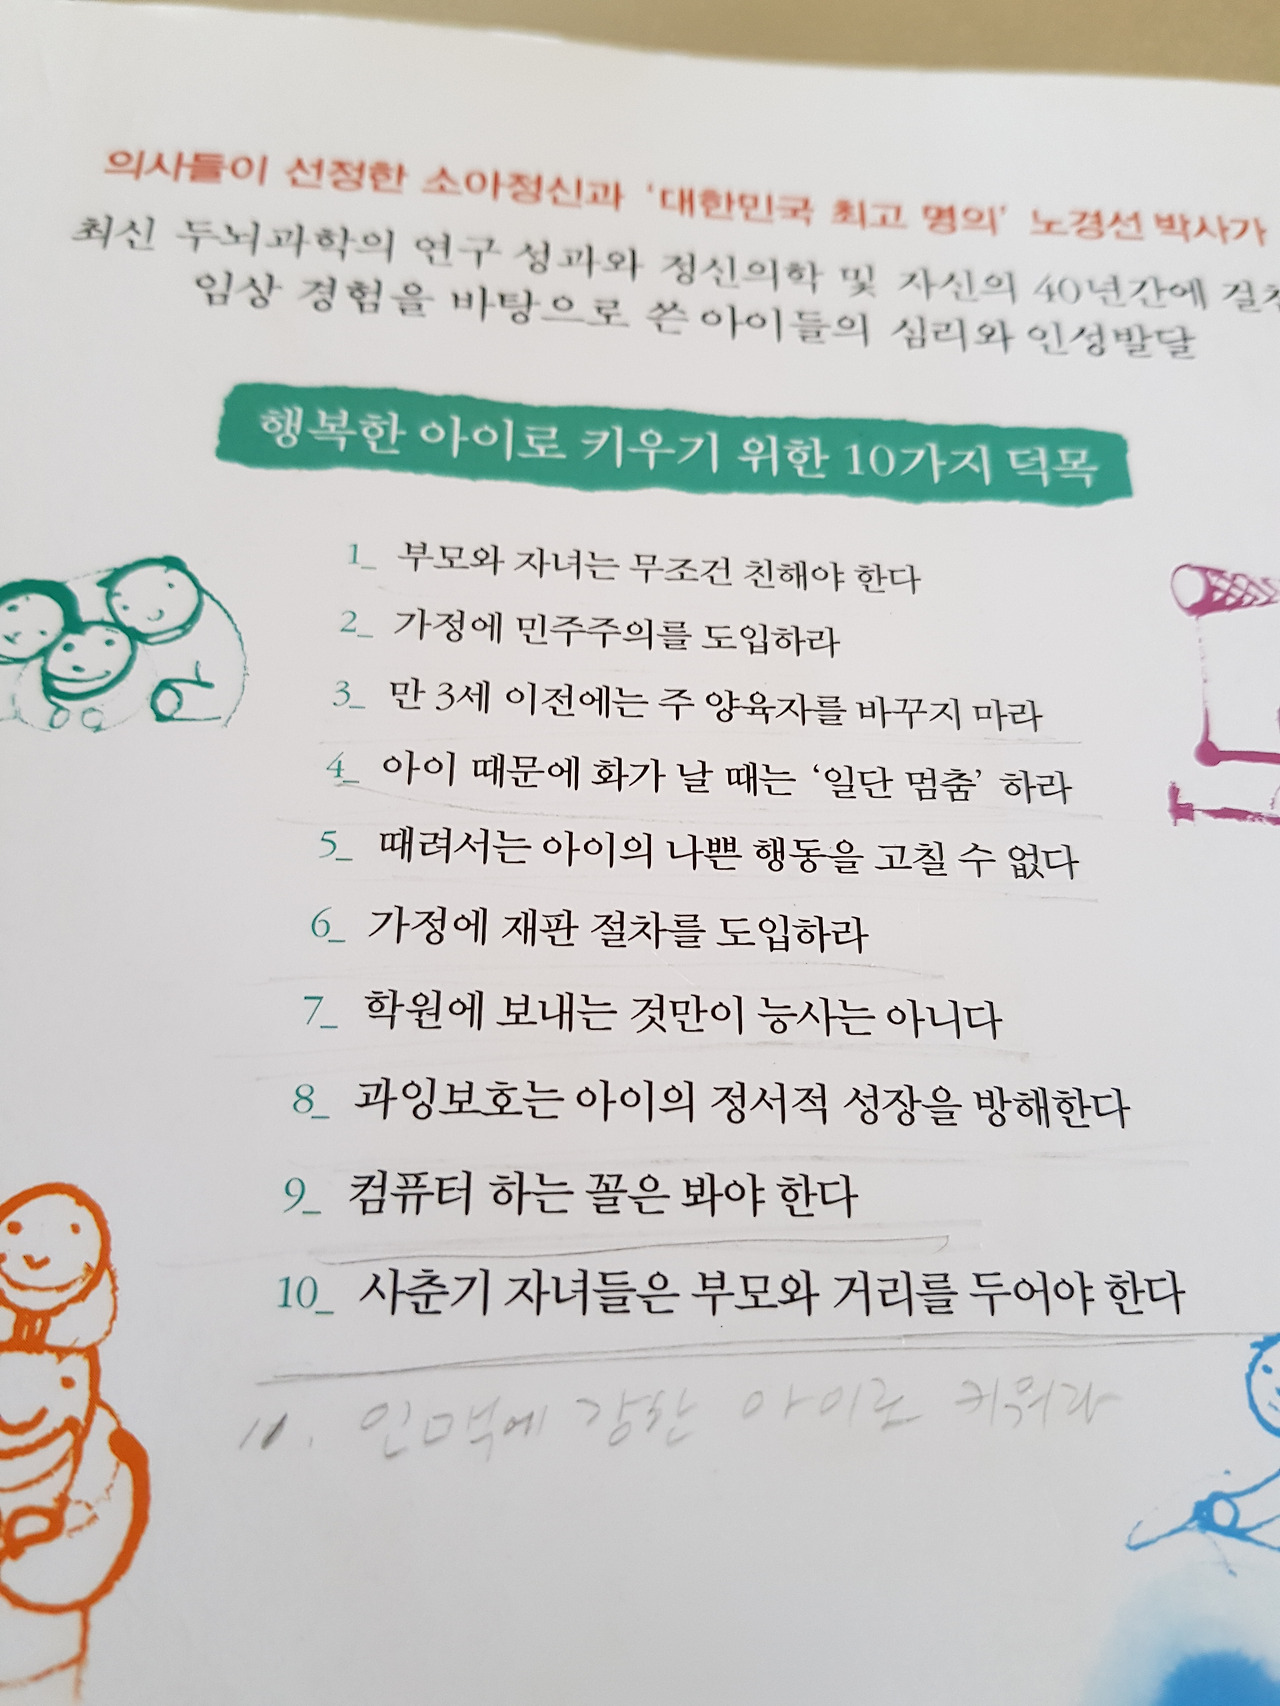 의사들이 선정한 소아정신과 '대한민국 최고 명의' 노경선 박사가
최신 두뇌과학의 연구 성과와 정신의학 및 자신의 40년간에 걸친
임상 경험을 바탕으로 쓴 아이들의 심리와 인성발달
행복한 아이로 키우기 위한 10가지 덕목
1_ 부모와 자녀는 무조건 친해야 한다
2_ 가정에 민주주의를 도입하라
3_ 만 3세 이전에는 주 양육자를 바꾸지 마라
4_ 아이 때문에 화가 날 때는 '일단 멈춤' 하라
5_ 때려서는 아이의 나쁜 행동을 고칠 수 없다
6_ 가정에 재판 절차를 도입하라
7_ 학원에 보내는 것만이 능사는 아니다
8_ 과잉보호는 아이의 정서적 성장을 방해한다
9_ 컴퓨터 하는 꼴은 봐야 한다
10_ 사춘기 자녀들은 부모와 거리를 두어야 한다
11. 인맥에 강한 아이로 키워라